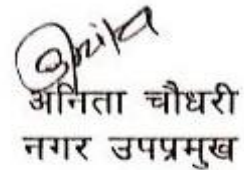 अनिता चौधरी
नगर उपप्रमुख